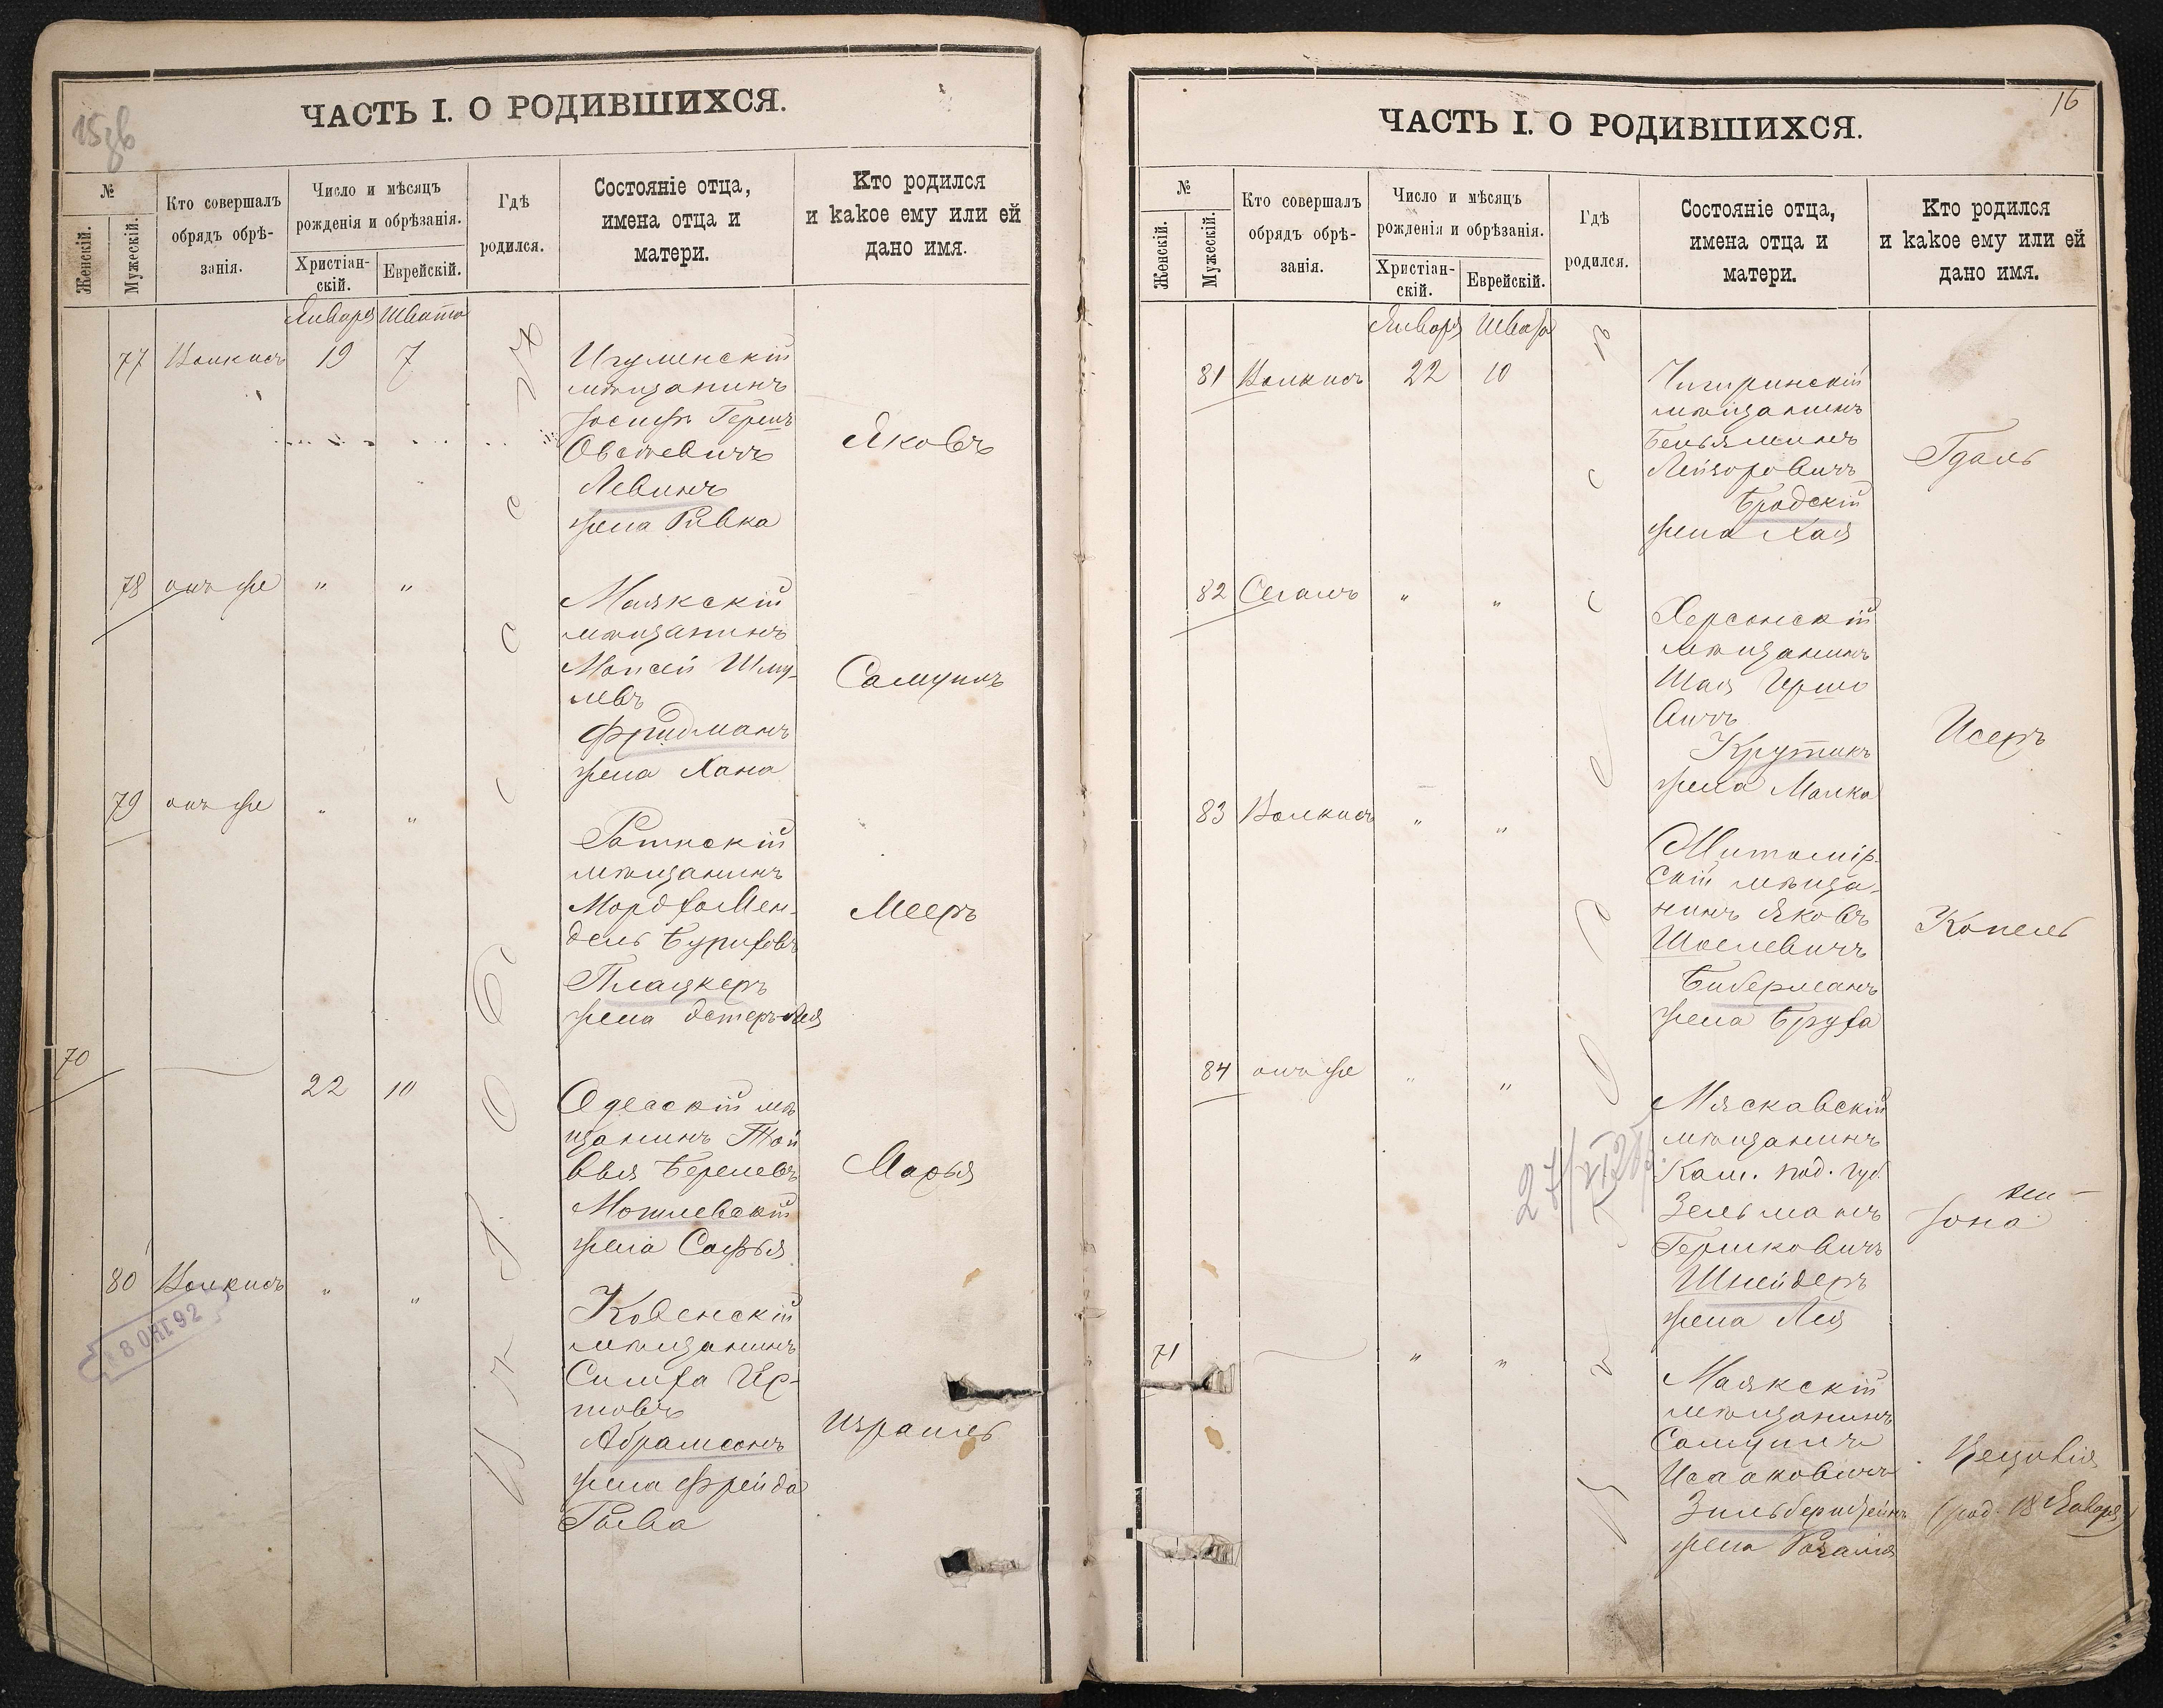 15 зв
ЧАСТЬ I. О РОДИВШИХСЯ.
№
Женскій.
Мужескій.
Кто совершалъ
обрядъ обрѣ-
занія.
Число и мѣсяцъ
рожденія и обрѣзанія.
Христіан-
скій.
Еврейскій.
Гдѣ
родился.
Состояніе отца,
имена отца и
матери.
Кто родился
и какое ему или ей
дано имя.
Января Швата
77 Волкисъ 19 7
Игуменскій
мѣщанинъ
Іосифъ Гершъ
Овсеевичъ
Левинъ
жена Ривка
Яковъ
78 онъ же " "
Маякскій
мѣщанинъ
Моисей Шму-
левъ
Фридманъ
жена Хана
Самуилъ
79 онъ же " "
Ратнскій
мѣщанинъ
Мордхо Мен-
дель Бурихов
Плацкеръ
жена Эстеръ-Лея
Мееръ
70 22 10
Одесскій мѣ
щанинъ Той
вья Берелевъ
Могилевскій
жена Софья
Марья
80 Волкисъ " "
18 ОКТ 92
Ковенскій
мѣщанинъ
Симха Ир-
шовъ
Абрамсонъ
жена Фрейда
Рыва
Израиль
16
ЧАСТЬ I. О РОДИВШИХСЯ.
№
Женскій.
Мужескій.
Кто совершалъ
обрядъ обрѣ-
занія.
Число и мѣсяцъ
рожденія и обрѣзанія.
Христіан-
скій.
Еврейскій.
Гдѣ
родился.
Состояніе отца,
имена отца и
матери.
Кто родился
и какое ему или ей
дано имя.
Января Швата
81 Волкисъ 22 10
Чигиринскій
мѣщанинъ
Беньяминъ
Лейзоровичъ
Бродскій
жена Хая
Гдаль
82 Сегалъ " "
Херсонскій
мѣщанинъ
Шая Иршо
вичъ
Крутикъ
жена Малка
Исеръ
83 Волкисъ " "
Житомір-
скій мѣща-
нинъ Яковъ
Шоелевичъ
Биберманъ
жена Бруха
Копель
84 онъ же " "
Мясковскій
мѣщанинъ
Кам. под. губ.
Зельманъ
Гершковичъ
Шнейдеръ
жена Лея
Іона
71 " "
Маякскій
мѣщанинъ
Самуилъ
Исааковичъ
Зильберштейнъ
жена Рахиль
Цецилія
(род. 18 Января)